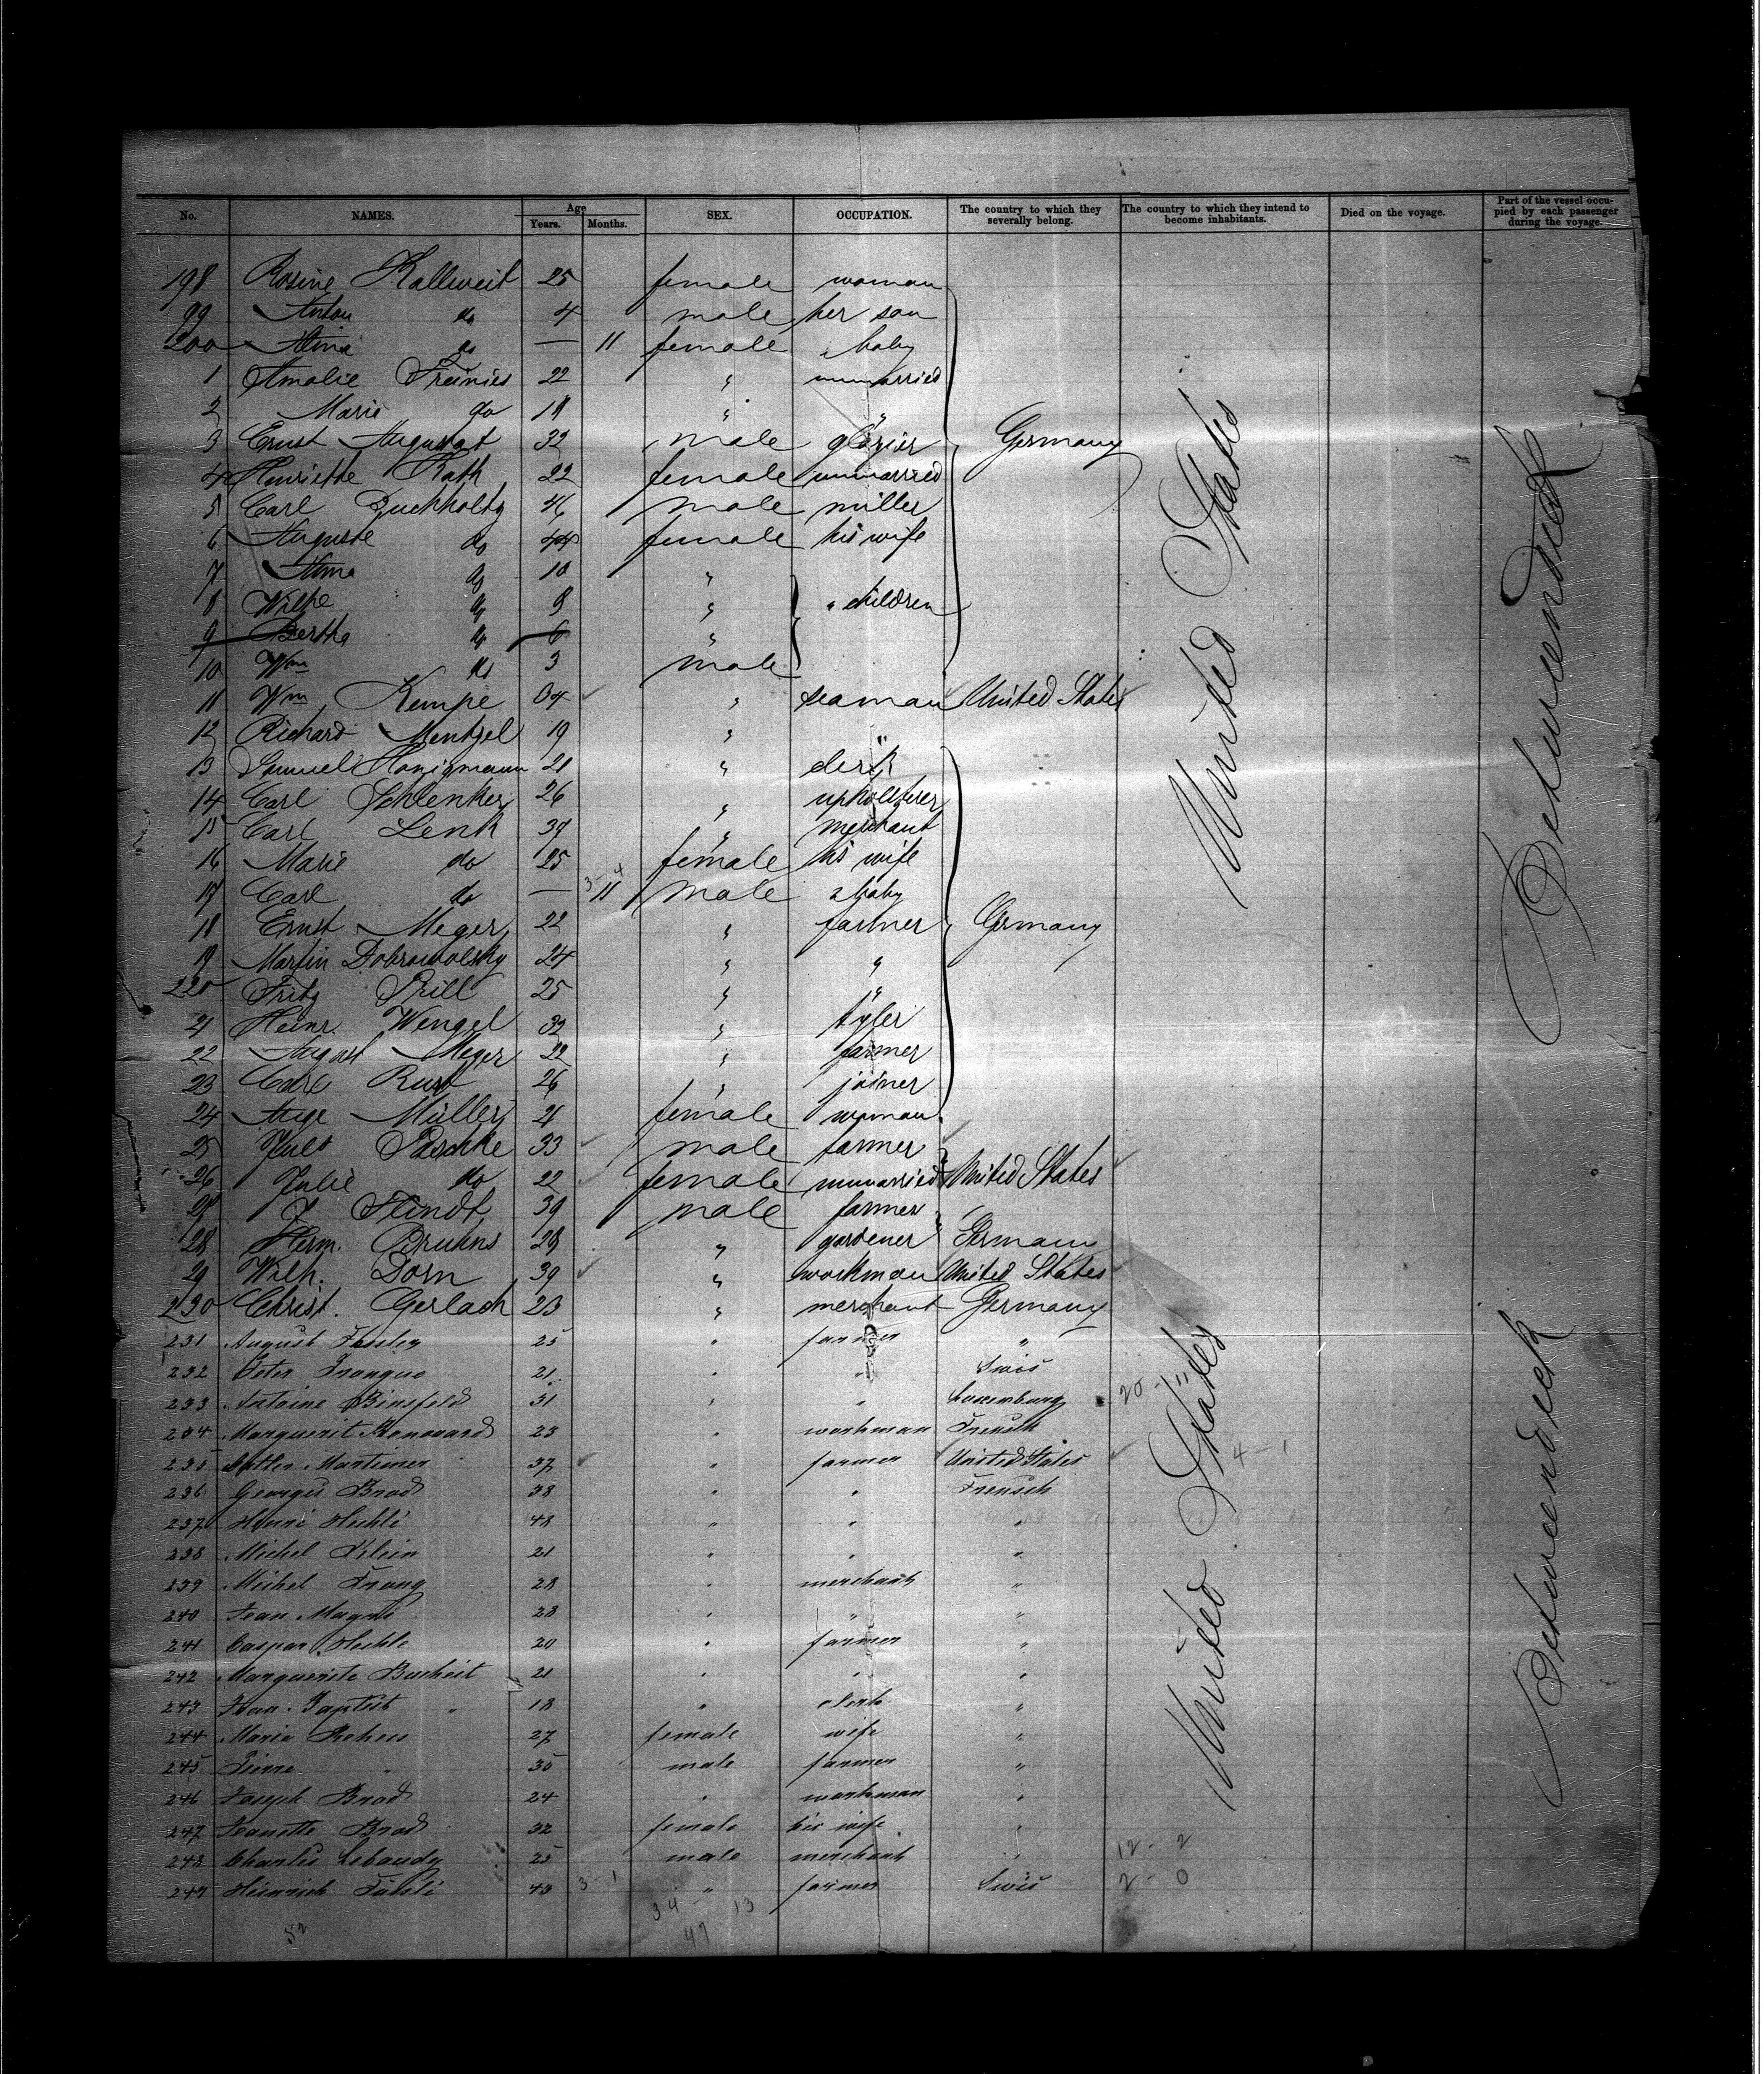 No. NAMES. Age Years. Months. SEX. OCCUPATION. The country to which they severally belong. The country to which they intend to become inhabitants. Died on the voyage. Part of the vessel occupied by each passenger during the voyage.
198 Rosine Kallweit 25 female woman
99 Anton do 4 male her son
200 do — 11 female " baby
1 Amalie 22 " unmarried
2 Marie do 18 " "
3 Ernst Augustat 32 male glazier Germany
4 Henriette Rath 22 female unmarried
5 Carl Buchholtz 46 male miller
6 Auguste do 44 female his wife
7 do 10 "
8 Wilhe do 9 " " children
9 Bertha do 6 "
10 Wm do 3 male
11 Wm Kempe 34 " seaman United States
12 Richard Mentzel 19 " "
13 Samuel Honigmann 21 " clerk
14 Carl Schlenker 26 " upholsterer
15 Carl Lenk 39 " merchant
16 Marie do 25 female his wife
17 Carl do — 11 3-4 male " baby
18 Ernst Meger 22 " farmer Germany
19 Martin Dobrowolsky 24 " "
220 Fritz Prill 25 " "
21 Heinr. Wengel 32 " tyler
22 August Meger 22 " farmer
23 Carl Rust 26 " joiner
24 Auge Müller 21 female woman
25 Juls Paschke 33 male farmer
26 Julie do 22 female unmarried United States
27 J Hindt 39 male farmer
28 Herm. Bruhns 28 " gardener Germany
29 Wilh. Dorn 39 " workman United States
230 Christ. Gerlach 23 " merchant Germany
231 August 25 " farmer "
232 Peter 21 " " Swis
233 Antoine Binsfeld 31 " " Luxemburg 20 - 11
234 Marguerit 23 " workman Frensch
235 Martimer 37 " farmer United States 4 - 1
236 Georges Brod 38 " " Frensch
237 Henri 48 " " "
238 Michel Klein 21 " " "
239 Michel Franz 28 " merchant "
240 Jean Magni 28 " " "
241 Caspar Hechle 20 " farmer "
242 Marguerite Bucheit 21 " " "
243 Jean Baptist " 18 " clerk "
244 Maria 27 female wife "
245 Pierre " 35 male farmer "
246 Joseph Brod 24 " workman "
247 Jeanette Brod 32 female his wife "
248 Charles Lebaudy 25 male merchant " 12 - 2
249 Heinrich 43 3-1 " farmer Swis 2 - 0
34 - 13
52 47
United States
Betweendeck
United States
Betweendeck